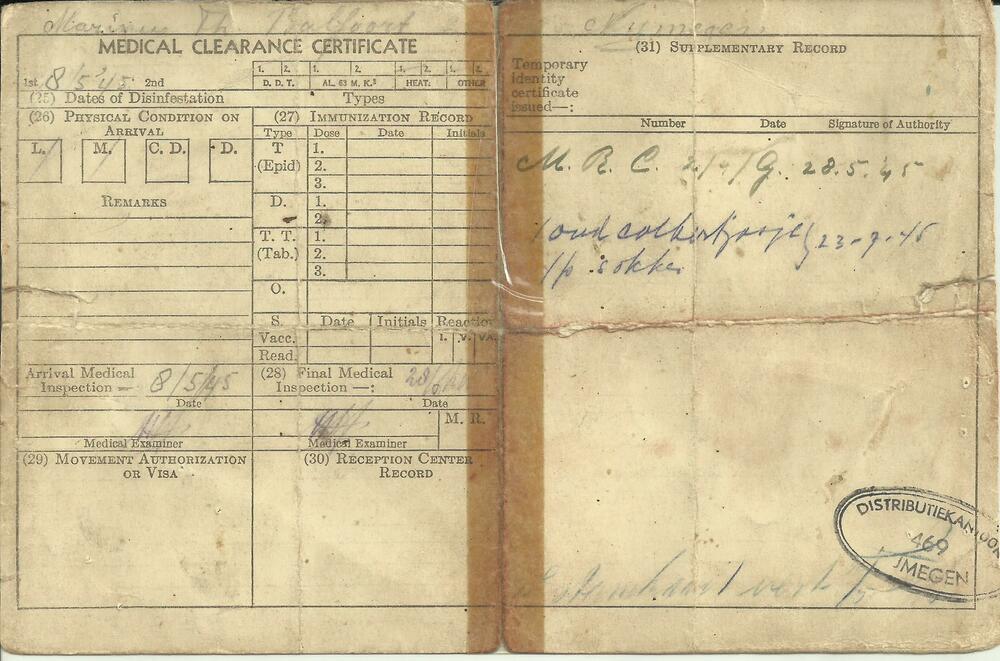 Nijmegen
MEDICAL CLEARANCE CERTIFICATE
1st 8/5'45 2nd
1. 2. 1. 2. 1. 2. 1. 2.
D. D. T. AL. 63 M. K.³ HEAT: OTHER
(25) Dates of Disinfestation Types
(26) PHYSICAL CONDITION ON ARRIVAL
L. M. C. D. D.
REMARKS
(27) IMMUNIZATION RECORD
Type Dose Date Initials
T (Epid) 1.
2.
3.
D. 1.
2.
T. T. (Tab.) 1.
2.
3.
O.
S. Date Initials Reaction
Vacc. I. V. VA.
Read.
Arrival Medical Inspection — 8/5/45
Date
Medical Examiner
(28) Final Medical Inspection —:
Date
M. R.
Medical Examiner
(29) MOVEMENT AUTHORIZATION OR VISA
(30) RECEPTION CENTER RECORD
(31) SUPPLEMENTARY RECORD
Temporary
identity
certificate
issued—:
Number Date Signature of Authority
M. R. C. 28.5.45
23-7-45
sokken
DISTRIBUTIEKANTOOR
469
JMEGEN